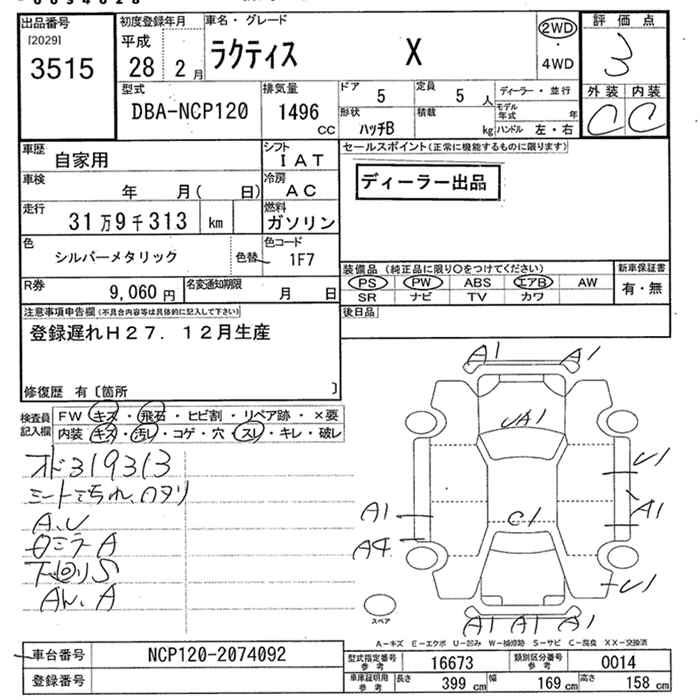 出品番号
[2029]
3515
初度登録年月
平成
28 2月
車名・グレード
ラクティス X
2WD
・
4WD
評価点
3
外装 内装
C C
型式
DBA-NCP120
排気量
1496
CC
ドア
5
定員
5 人
ディーラー・並行
形状
ハッチB
積載
kg
モデル年式 年
ハンドル 左・右
車歴
自家用
シフト
IAT
車検
年 月( 日)
冷房
AC
走行
31万9千313 km
燃料
ガソリン
色
シルバーメタリック
色替
色コード
1F7
R券
9,060円
名変通知期限
月 日
セールスポイント(正常に機能するものに限ります)
ディーラー出品
装備品(純正品に限り○をつけてください)
PS PW ABS エアB AW
SR ナビ TV カワ
新車保証書
有・無
後日品
注意事項申告欄(不具合内容等は具体的に記入して下さい)
登録遅れH27.12月生産
修復歴 有〔箇所 〕
検査員記入欄
FW キズ・飛石・ヒビ割・リペア跡・×要
内装 キズ・汚レ・コゲ・穴・スレ・キレ・破レ
319313
A、U
A
下回りS
A
A1 A1
UA1
U1
A1
A1
C1
A4
U1
A1 A1 A1
スペア
A-キズ E-エクボ U-凹み W-補修跡 S-サビ C-腐食 XX-交換済
車台番号
NCP120-2074092
登録番号
型式指定番号
参考
16673
類別区分番号
参考
0014
車庫証明用
参考
長さ 399 cm
幅 169 cm
高さ 158 cm